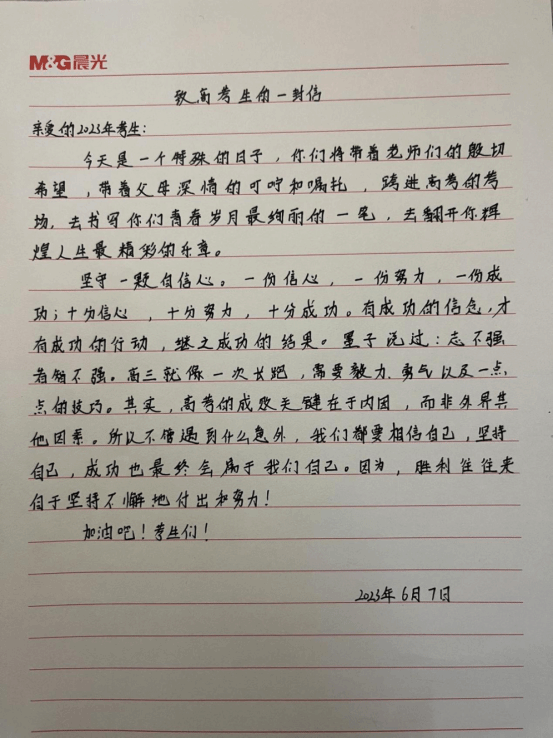 M&G晨光
致高考生的一封信
亲爱的2023年考生:
今天是一个特殊的日子，你们将带着老师们的殷切
希望，带着父母深情的叮咛和嘱托，踏进高考的考
场，去书写你们青春岁月最绚丽的一笔，去翻开你辉
煌人生最精彩的乐章。
坚守一颗自信心。一份信心，一份努力，一份成
功；十分信心，十分努力，十分成功。有成功的信念，才
有成功的行动，继之成功的结果。墨子说过：志不强
者智不强。高三就像一次长跑，需要毅力、勇气以及一点
点的技巧。其实，高考的成败关键在于内因，而非外界其
他因素。所以不管遇到什么意外，我们都要相信自己，坚持
自己，成功也最终会属于我们自己。因为，胜利往往来
自于坚持不懈地付出和努力！
加油吧！考生们！
2023年6月7日